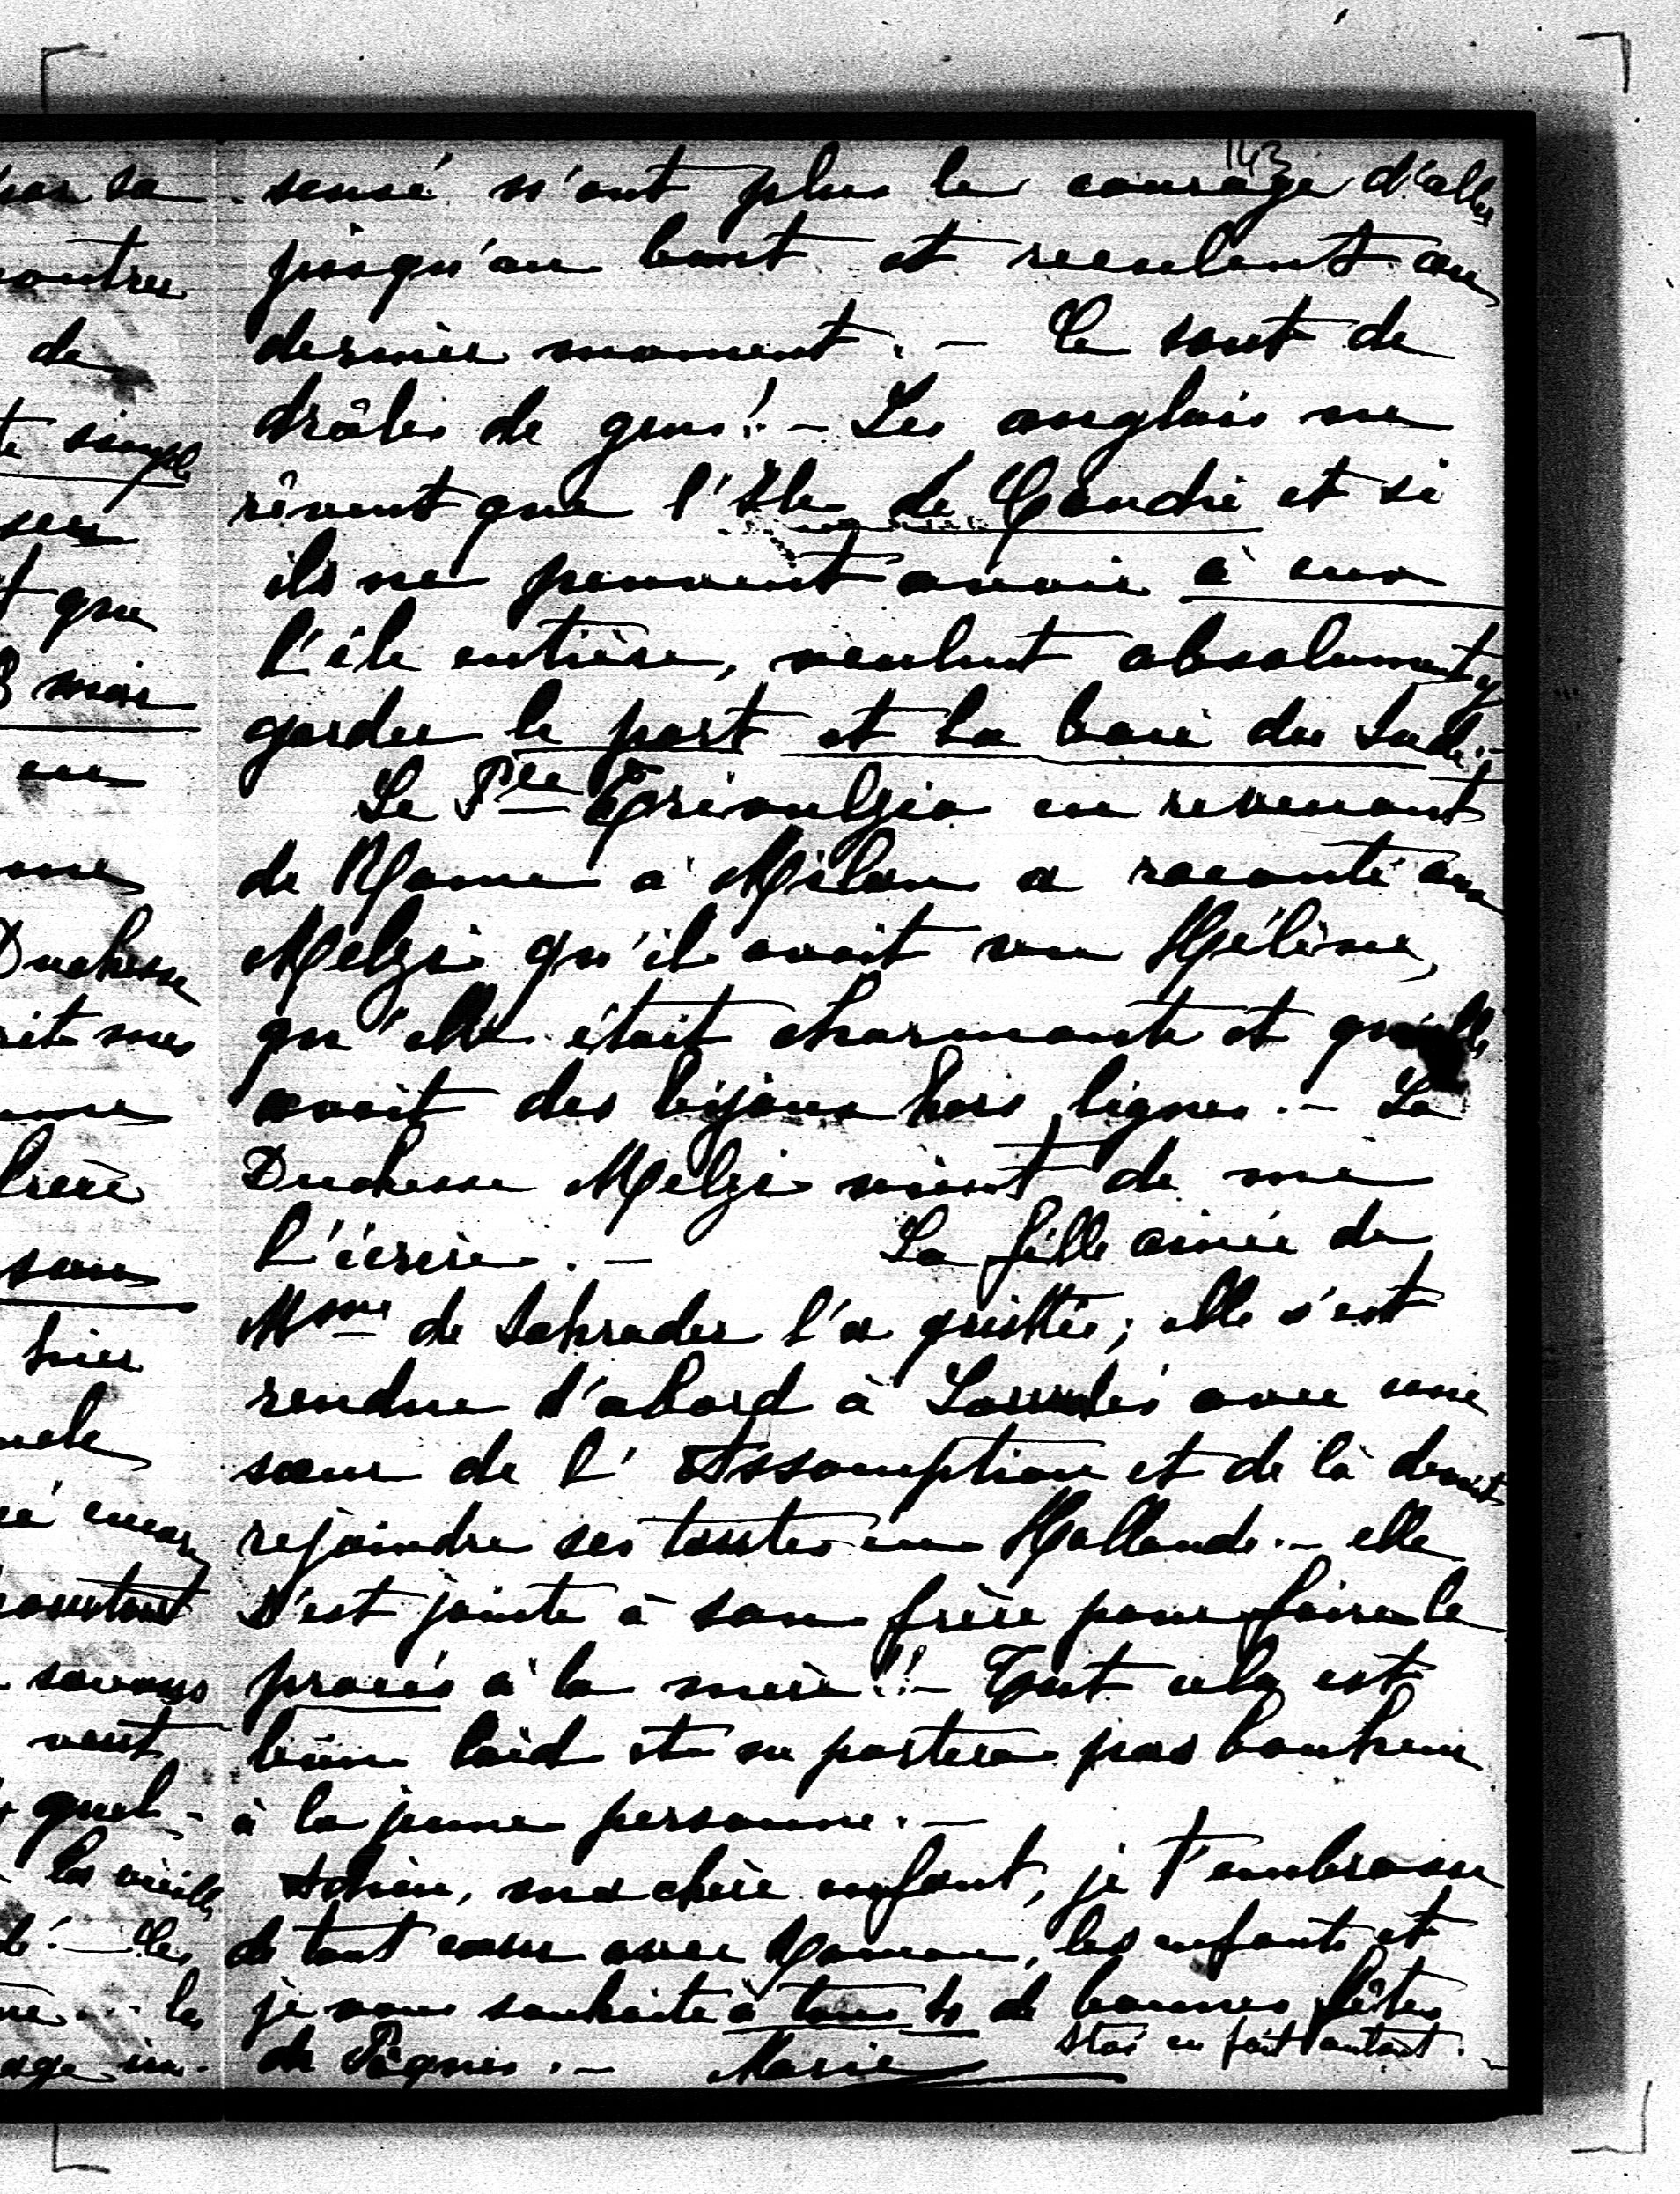 143
sensé n'ont plus le courage d'aller
jusqu'au bout et reculent au
dernier moment. — Ce sont de
drôles de gens! — Les anglais ne
rêvent que l'Ile de Candie et si
ils ne peuvent avoir à eux
l'île entière, veulent absolument y
garder le port et la baie du Sude. —
Le Pce Trivulzio en revenant
de Rome à Milan a raconté aux
Melzi qu'il avait vu Hélène,
qu'elle était charmante et qu'elle
avait des bijoux hors lignes. — La
Duchesse Melzi vient de me
l'écrire. — La fille ainée de
Mme de Schrader l'a quittée; elle s'est
rendue d'abord à Lourdes avec une
sœur de l'Assomption et de là devait
rejoindre ses tantes en Hollande. — elle
s'est jointe à son frère pour faire le
procès à la mère!! — Tout cela est
bien laid et ne portera pas bonheur
à la jeune personne. —
Adieu, ma chère enfant, je t'embrasse
de tout cœur avec Roman, les enfants et
je vous souhaite à tous de bonnes fêtes
de Pâques. — Marie
Stas en fait autant. —
par sa
contrer
de
simple
que
8 mois
Duchesse
frère
sans
hier
encore
pourtant
savons
veut
quel-
la vieille
les